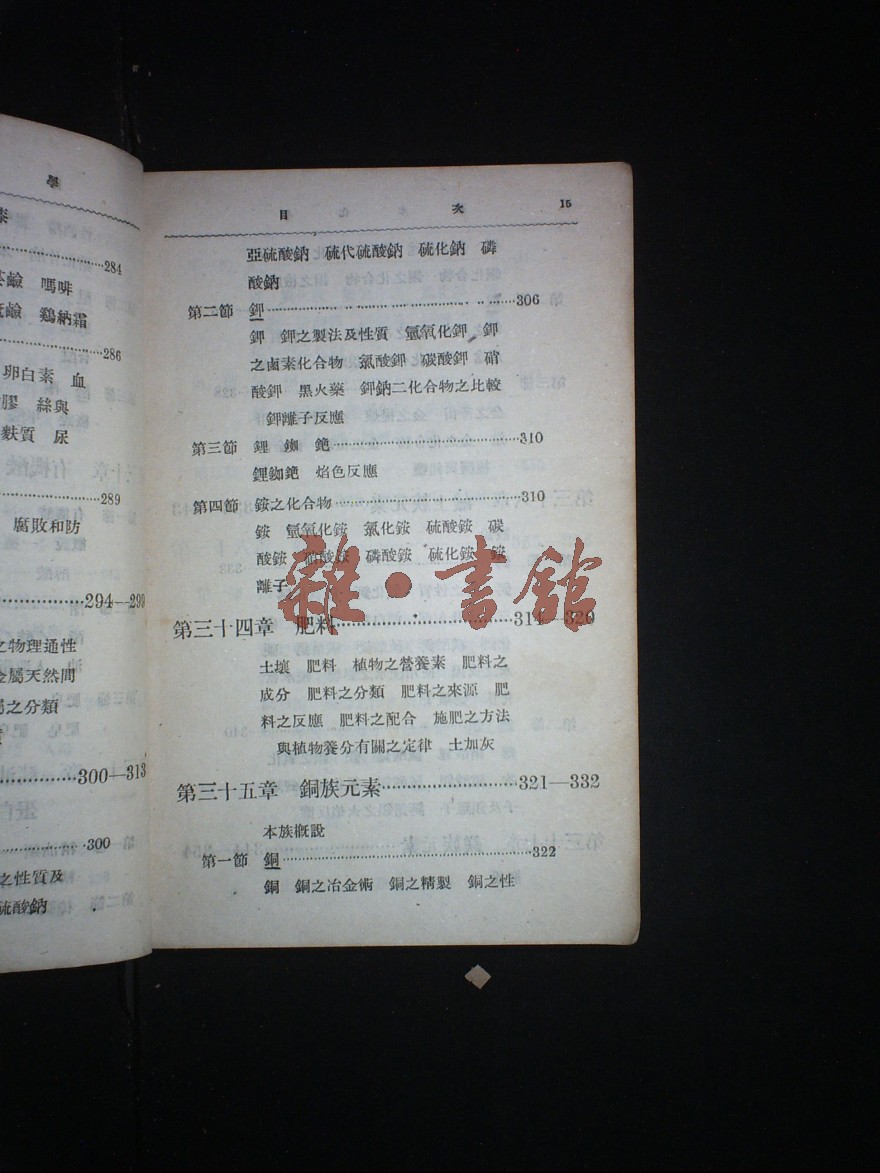 學
284
鹼 嗎啡
鹼 鷄納霜
286
卵白素 血
膠 絲與
麩質 尿
289
腐敗和防
294—299
之物理通性
金屬天然間
屬之分類
300—313
300
之性質及
硫酸鈉
目 次 15
亞硫酸鈉 硫代硫酸鈉 硫化鈉 磷
酸鈉
第二節 鉀 306
鉀 鉀之製法及性質 氫氧化鉀 鉀
之鹵素化合物 氯酸鉀 碳酸鉀 硝
酸鉀 黑火藥 鉀鈉二化合物之比較
鉀離子反應
第三節 鋰 銣 銫 310
鋰銣銫 焰色反應
第四節 銨之化合物 310
銨 氫氧化銨 氯化銨 硫酸銨 碳
酸銨 硝酸銨 磷酸銨 硫化銨 銨
離子
雜·書館
第三十四章 肥料 314—320
土壤 肥料 植物之營養素 肥料之
成分 肥料之分類 肥料之來源 肥
料之反應 肥料之配合 施肥之方法
與植物養分有關之定律 土加灰
第三十五章 銅族元素 321—332
本族概說
第一節 銅 322
銅 銅之冶金術 銅之精製 銅之性